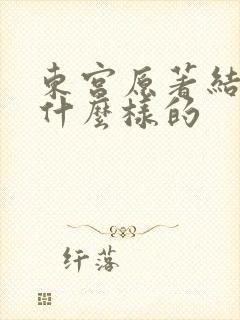 東宮原著結
什麼樣的
纤落